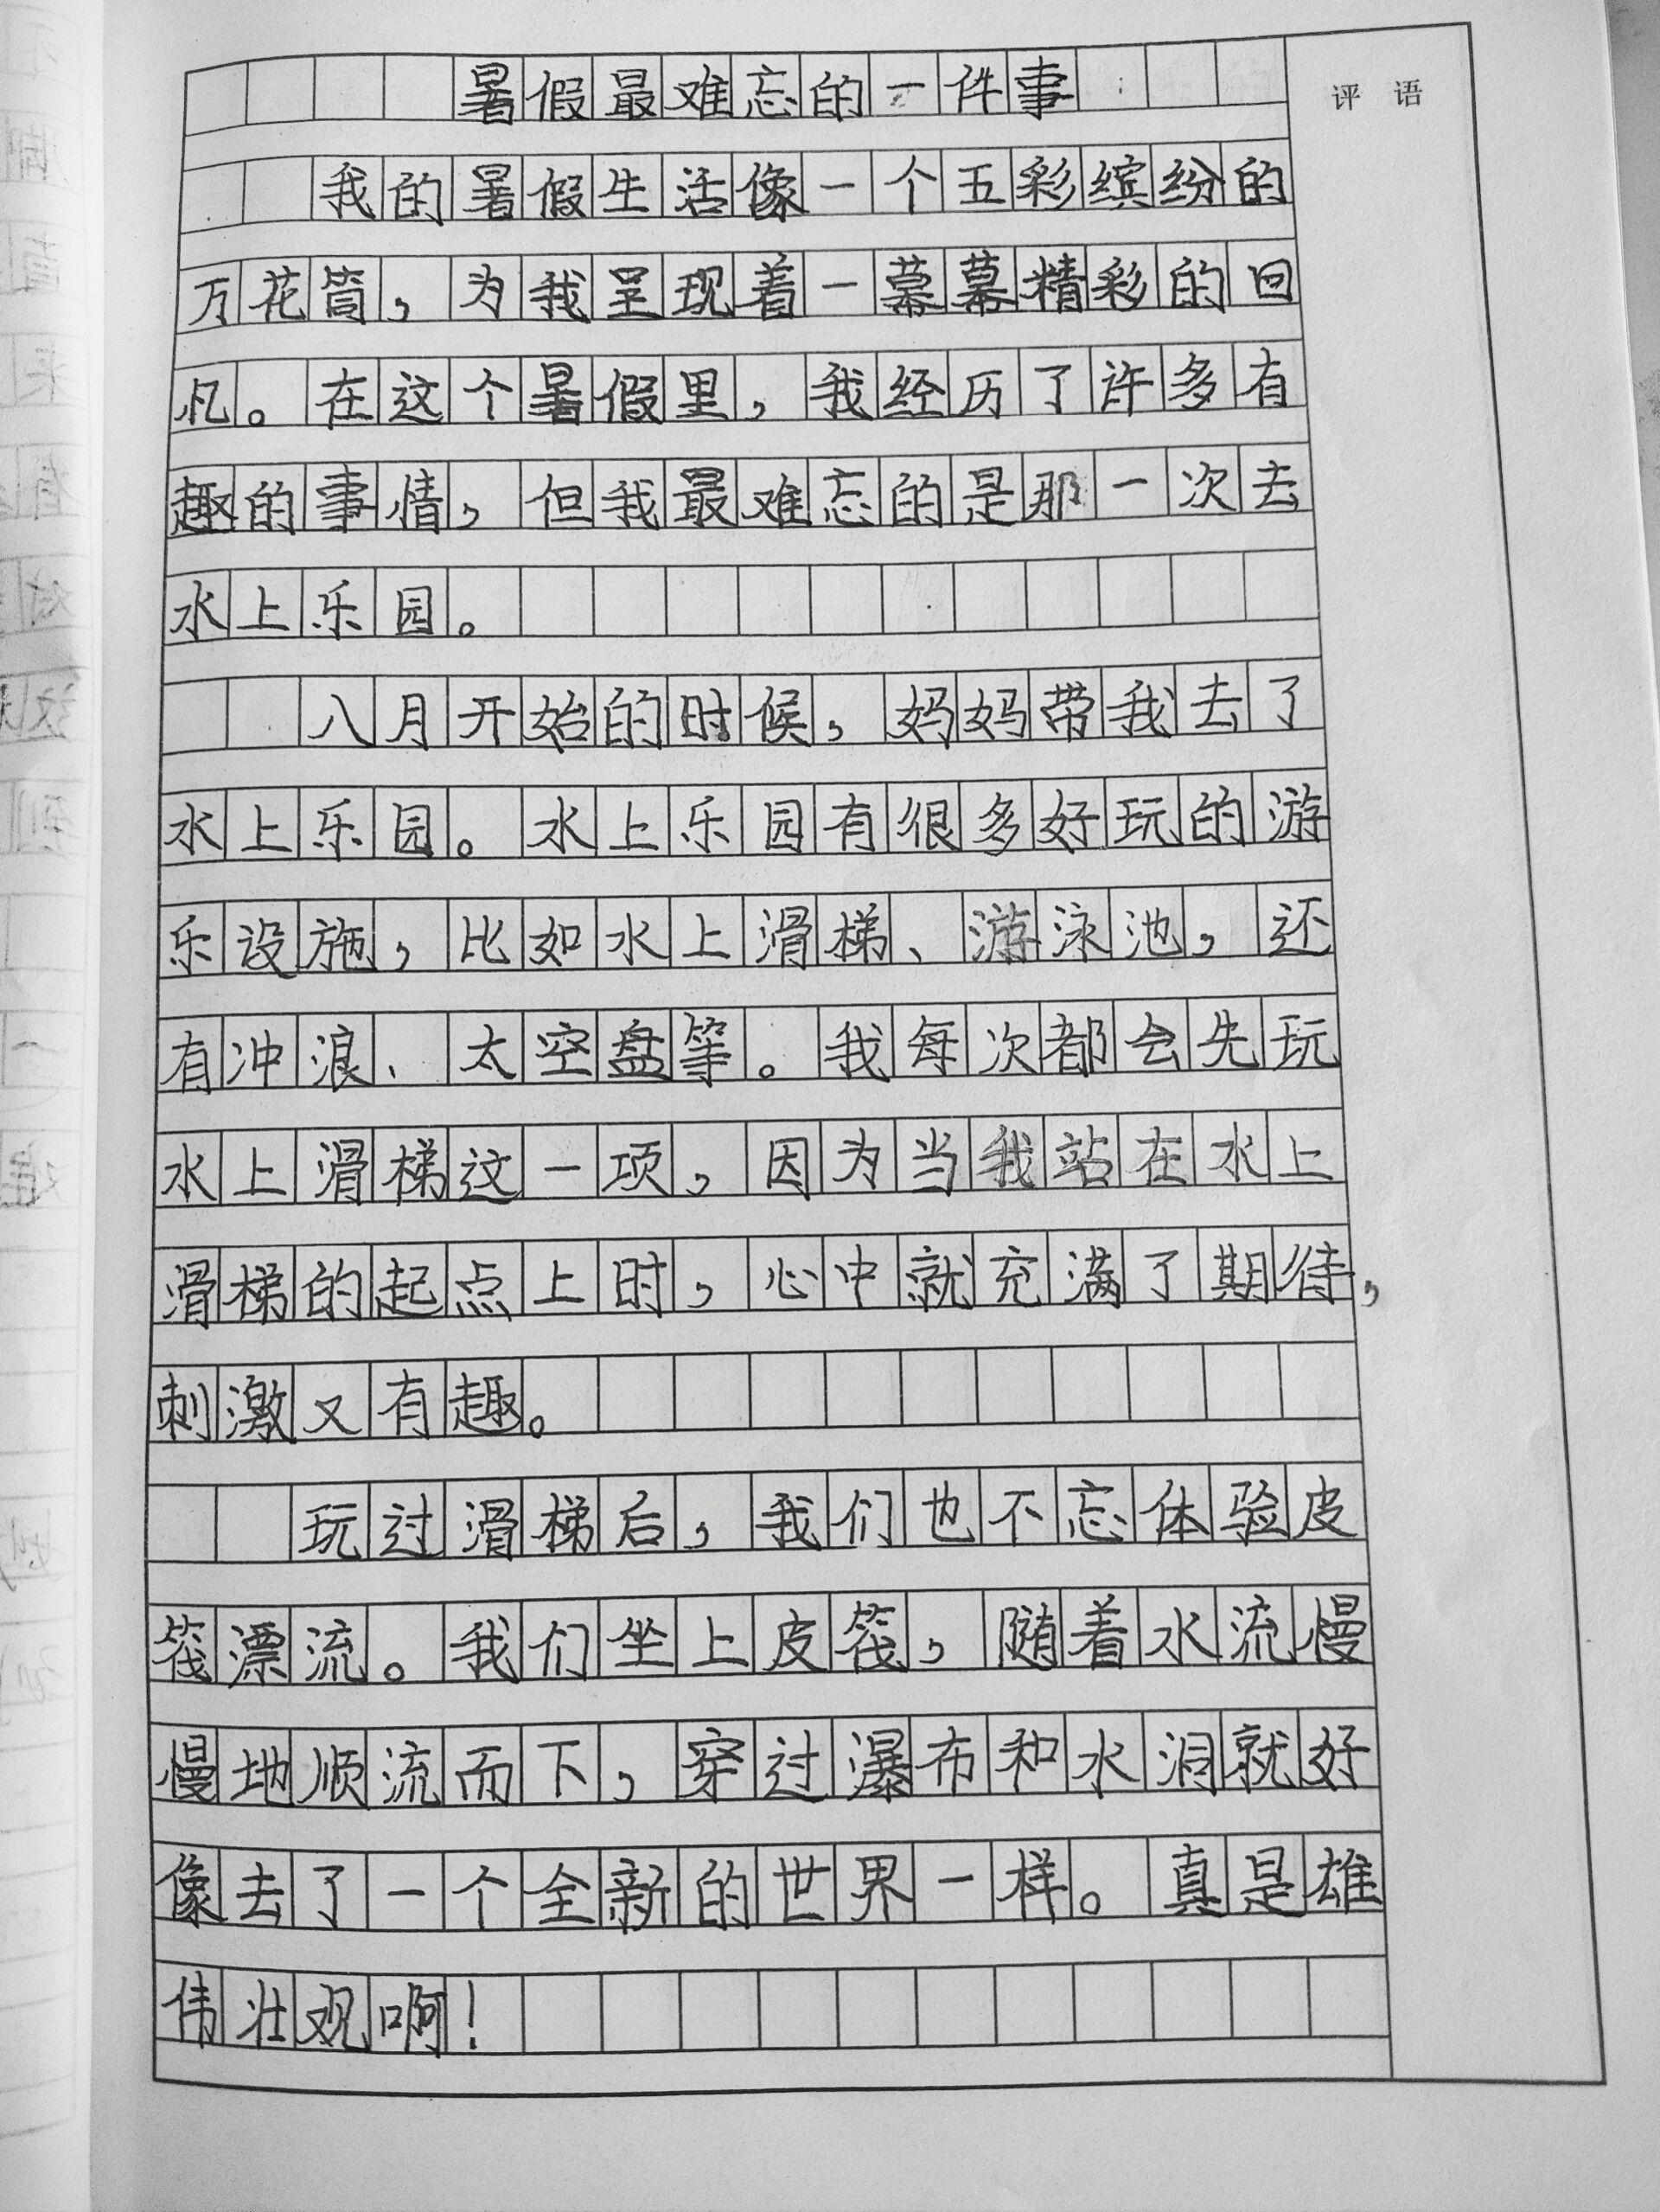 暑假最难忘的一件事
评语
我的暑假生活像一个五彩缤纷的
万花筒，为我呈现着一幕幕精彩的回
凡。在这个暑假里，我经历了许多有
趣的事情，但我最难忘的是那一次去
水上乐园。
八月开始的时候，妈妈带我去了
水上乐园。水上乐园有很多好玩的游
乐设施，比如水上滑梯、游泳池，还
有冲浪、太空盘等。我每次都会先玩
水上滑梯这一项，因为当我站在水上
滑梯的起点上时，心中就充满了期待，
刺激又有趣。
玩过滑梯后，我们也不忘体验皮
筏漂流。我们坐上皮筏，随着水流慢
慢地顺流而下，穿过瀑布和水洞就好
像去了一个全新的世界一样。真是雄
伟壮观啊！